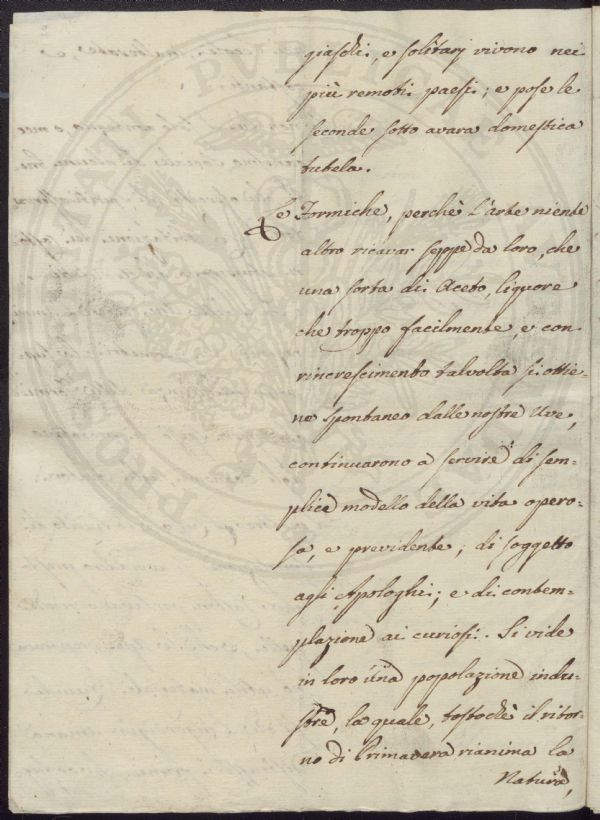 giaschi, e solitarj vivono nei
più remoti paesi; e pose le
seconde sotto avara domestica
tutela.
Le Formiche, perchè l'arte niente
altro ricavar seppe da loro, che
una sorta di Aceto, liquore
che troppo facilmente, e con
rincrescimento talvolta si ottie-
ne spontaneo dalle nostre Uve,
continuarono a servire di sem-
plice modello della vita opero-
sa, e previdente; di soggetto
agli Apologhi; e di contem-
plazione ai curiosi. Si vide
in loro una popolazione indu-
stre, la quale, tostochè il ritor-
no di Primavera rianima la
Natura,